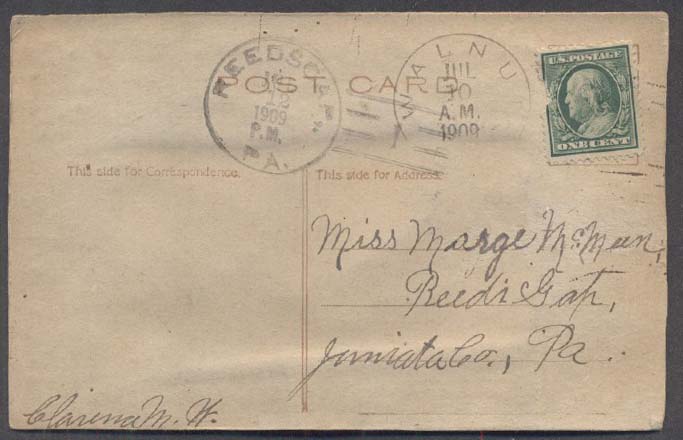 POST CARD
REEDSGAP.
12
1909
P.M.
PA.
WALNU
JUL
10
A.M.
1909
U.S. POSTAGE
ONE CENT
This side for Correspondence.
This side for Address.
Miss Marge
Reeds Gap,
Juniata Co., Pa.
M. W.